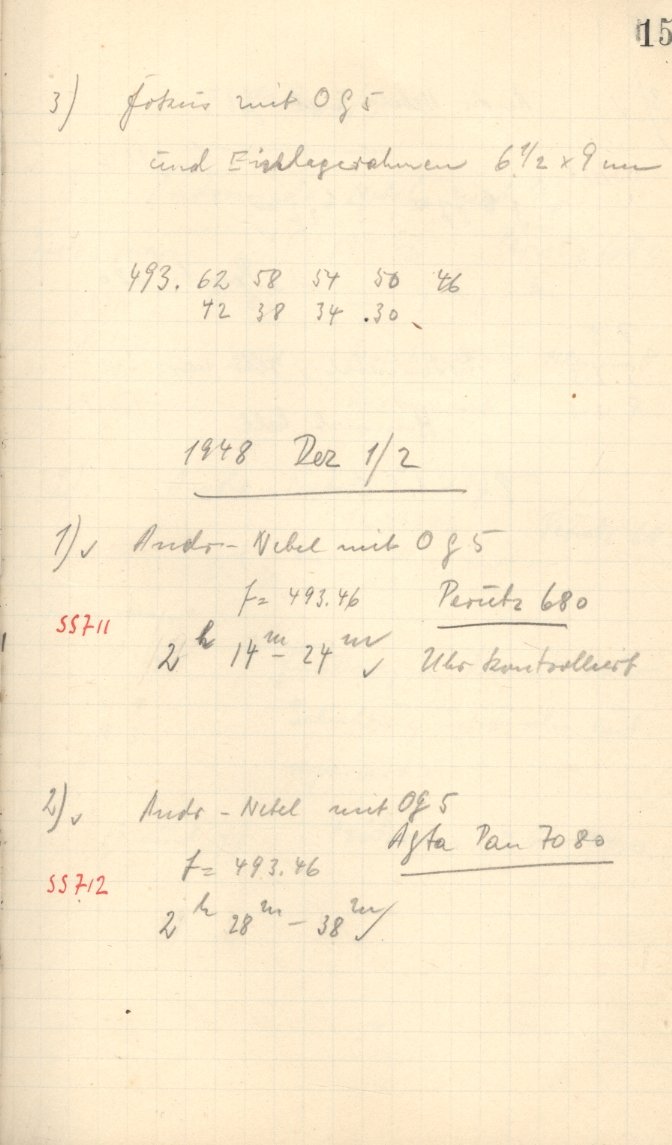 15
3) Fokus mit OG5
und Einlagerahmen 6 1/2 x 9 cm
493. 62 58 54 50 46
42 38 34 .30
1948 Dez 1/2
1)✓ Andr-Nebel mit OG5
f = 493.46 Perutz 680
SS711
2h 14m - 24m ✓ Uhr kontrolliert
2)✓ Andr-Nebel mit OG5
Agfa Pan 7080
f = 493.46
SS712
2h 28m - 38m ✓